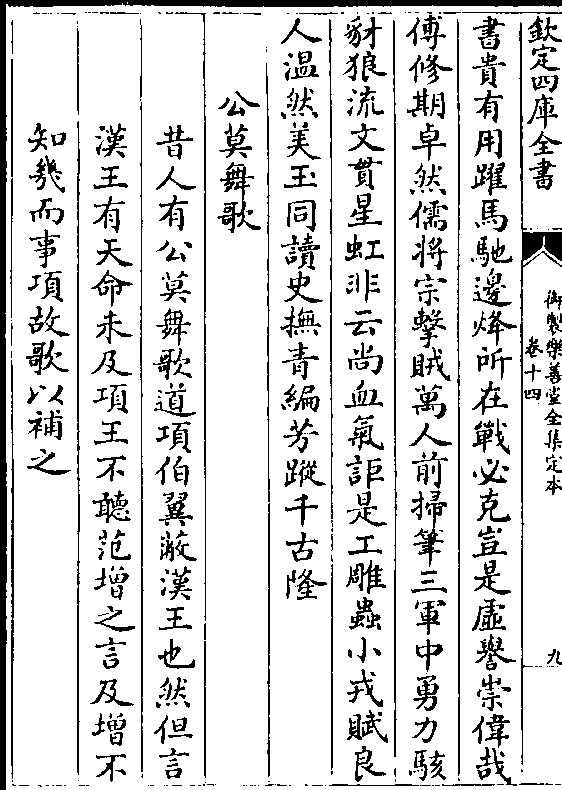 欽定四庫全書
御製樂善堂全集定本
卷十四
九
書貴有用躍馬馳邊烽所在戰必克豈是虛譽崇偉哉
傅修期卓然儒將宗擊賊萬人前掃筆三軍中勇力駭
豺狼流文貫星虹非云尚血氣詎是工雕蟲小戎賦良
人温然美玉同讀史撫青編芳蹤千古隆
公莫舞歌
昔人有公莫舞歌道項伯翼蔽漢王也然但言
漢王有天命未及項王不聽范增之言及增不
知幾而事項故歌以補之